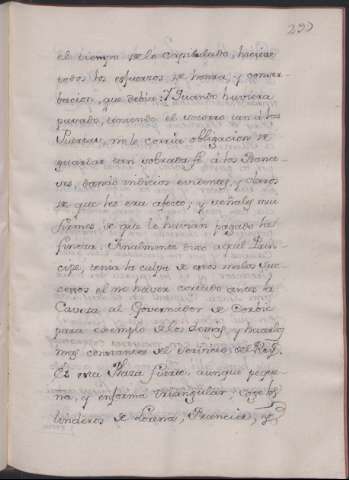 235
el tiempo de lo Capitulado, hiciese
todos los esfuerzos de honra, y conser-
bacion, que debia: Y Quando huviera
parado, teniendo el socorro tan á las
Puertas, no le corria obligacion de
guardar tan sobrada fè á los France-
ses, dando indicios evidentes, y claros
de que les era afecto; y señales mui
firmes, de que le hacian pagado las
finezas. Finalmente dixo aquel Prin-
cipe, tenia la culpa de otros malos Suc-
cesos el no haver cortado antes la
Caveza al Governador de
para exemplo de los demas, y hacerlos
mas constantes al servicio del Rey.
Es esta Plaza fuerte, aunque peque-
ña, y en forma triangular; coge los
linderos de Lorena, Francia, y